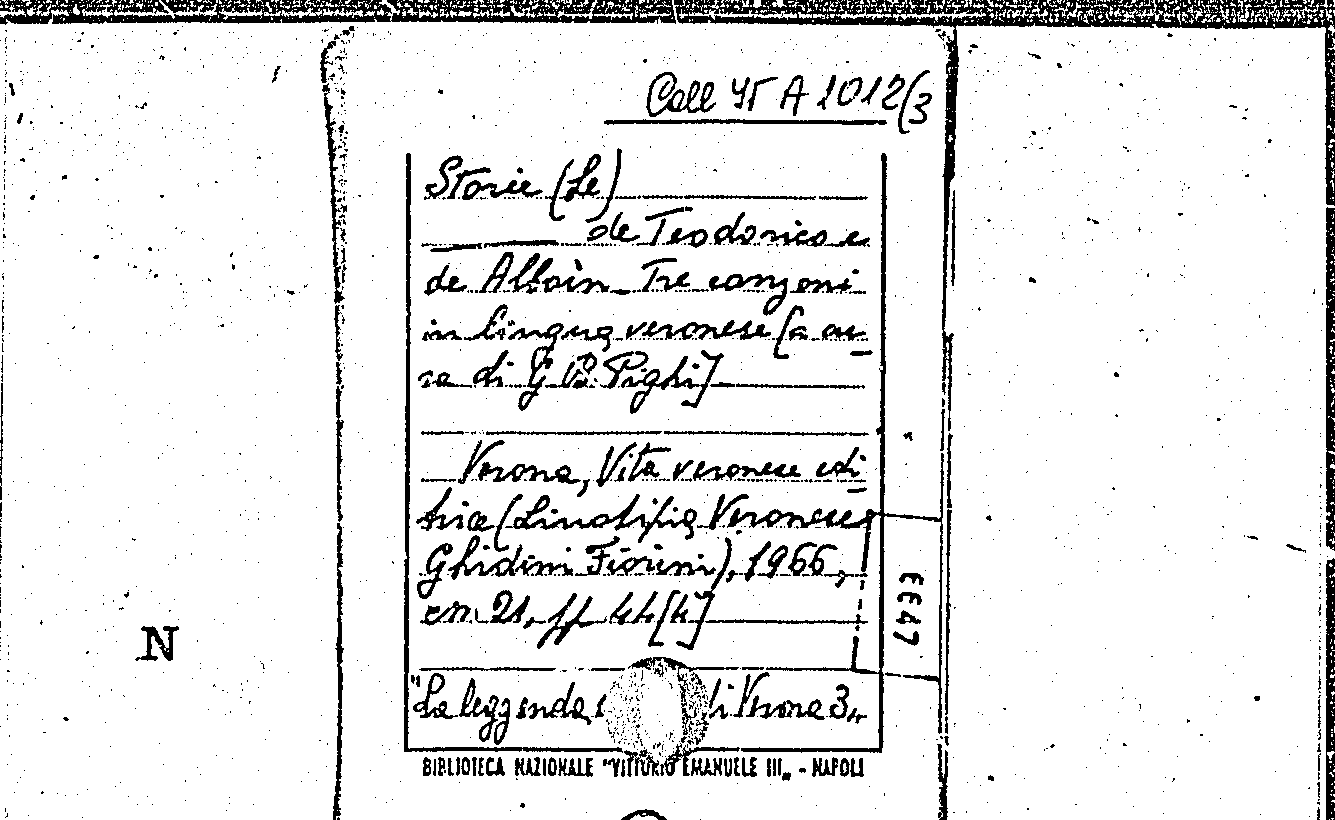 Coll 45 A 1012(3
Storie (Le)
de Teodorico e
de Alboin_ Tre canzoni
in lingua veronese [a cu_
ra di G B. Pighi]
Verona, Vita veronese edi_
trice (Linotipia Veronese
Ghidini Fiorini), 1966,
cm. 21, pp. 44 [4]
"La leggenda di Verona 3„
BIBLIOTECA NAZIONALE "VITTORIO EMANUELE III„ - NAPOLI
N